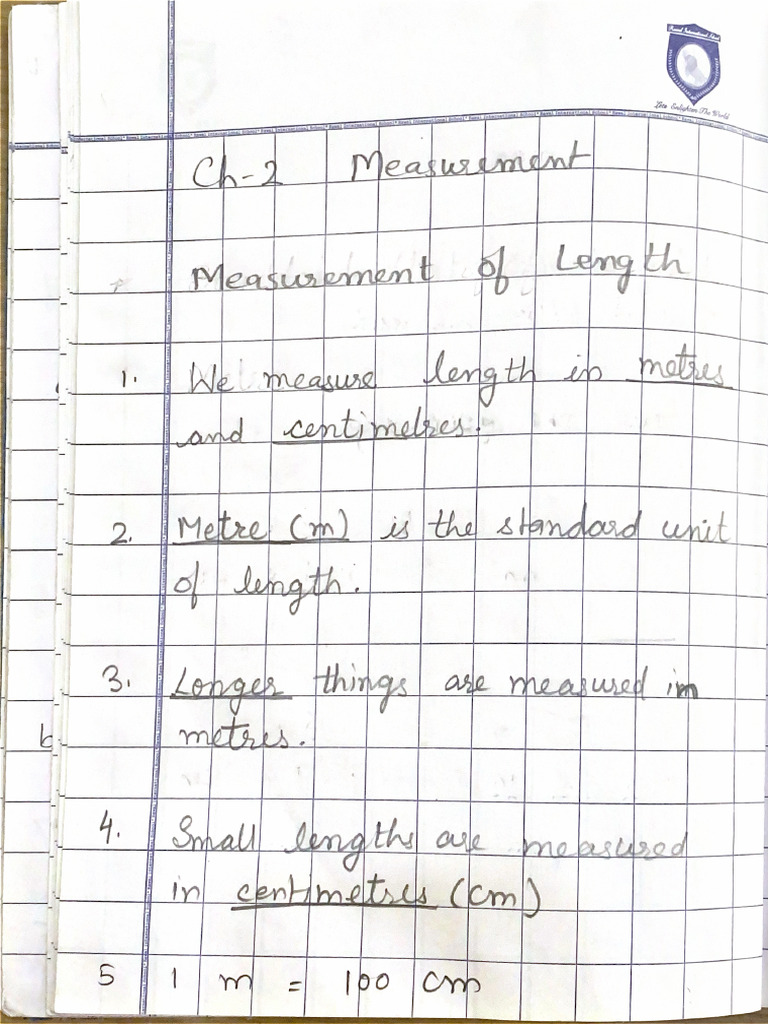 Lets Enlighten The World
Ch-2 Measurement
Measurement of Length
1. We measure length in metres
and centimetres.
2. Metre (m) is the standard unit
of length.
3. Longer things are measured in
metres.
4. Small lengths are measured
in centimetres (cm)
5 1 m = 100 cm